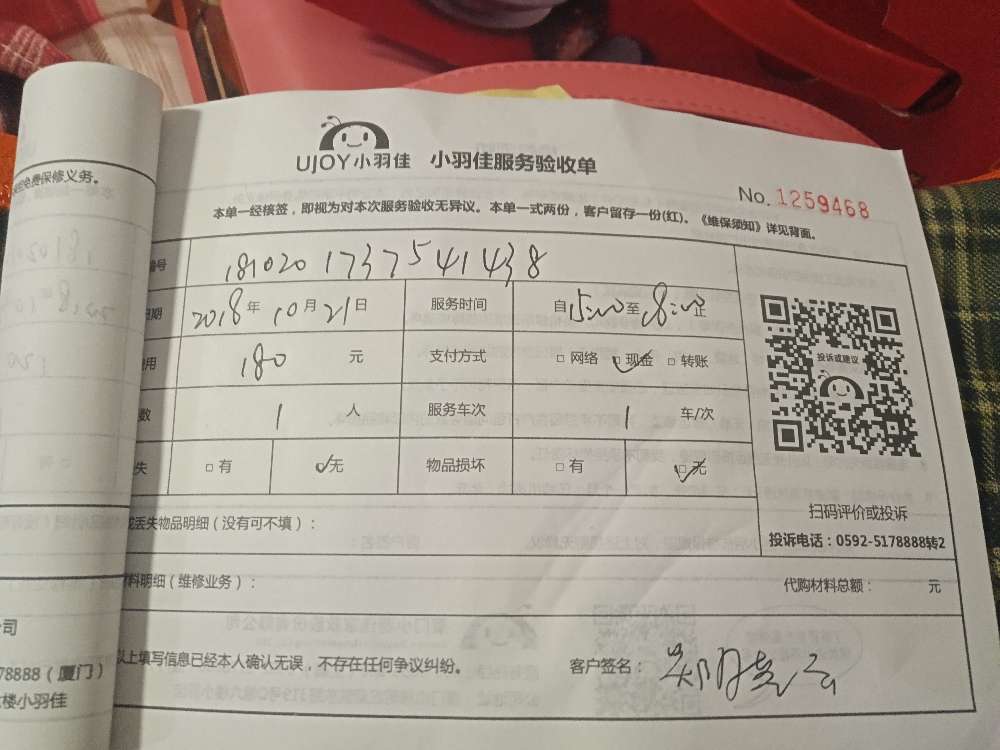 免费保修义务。
UJOY小羽佳 小羽佳服务验收单
No. 1259468
本单一经接签，即视为对本次服务验收无异议。本单一式两份，客户留存一份(红)。《维保须知》详见背面。
号 181020173754 1438
日期 2018年10月21日 服务时间 自15:00至18:00止
用 180 元 支付方式 □网络 ☑现金 □转账
数 1 人 服务车次 1 车/次
失 □有 ☑无 物品损坏 □有 ☑无
投诉或建议
扫码评价或投诉
投诉电话：0592-5178888转2
丢失物品明细（没有可不填）：
料明细（维修业务）： 代购材料总额： 元
以上填写信息已经本人确认无误，不存在任何争议纠纷。 客户签名：
公司
78888（厦门）
楼小羽佳